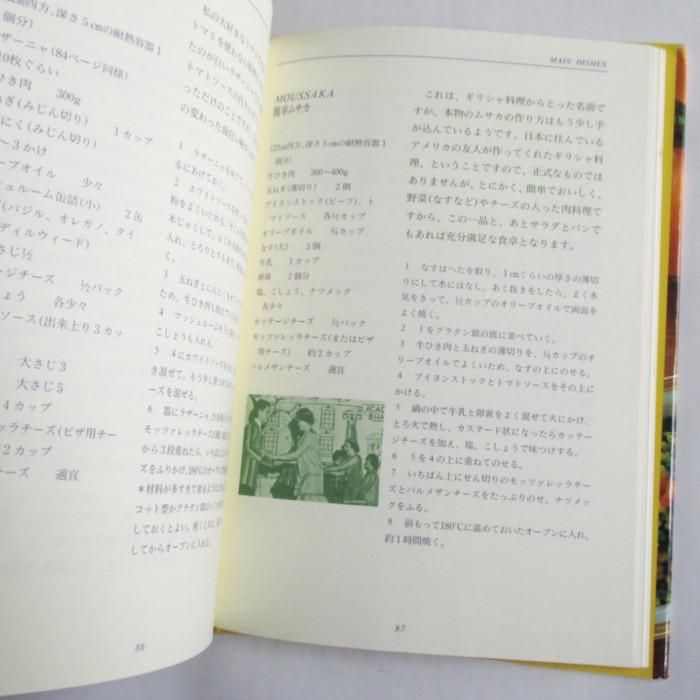 ㎝四方、深さ5㎝の耐熱容器1
個分)
ザーニャ(84ページ同様)
10枚ぐらい
ひき肉 300g
ねぎ(みじん切り) 1カップ
にく(みじん切り)
〜3かけ
ーブオイル 少々
シュルーム缶詰(小) 2缶
(バジル、オレガノ、タイ
ディルウィード)
さじ½
ージチーズ ½パック
しょう 各少々
ソース(出来上り3カッ
大さじ3
大さじ5
4カップ
レラチーズ(ピザ用チー
2カップ
チーズ 適宜
私の大好きな
トマトを使わない
たのが白いラザーニャ
トマトソースの作り
っただけのことです
の変わった面白い
1 ラザーニャをゆで
るにあけておく。
2 ホワイトソースを
粉をよくいため、
木じゃくして、よく
入れ、とろりとするまで
く。
3 玉ねぎとにんにくを
ため、牛ひき肉も
4 マッシュルームを
こしょうも入れる。
5 4にホワイトソースを
き混ぜて、もう少し煮つ
ーズを混ぜる。
6 器にラザーニャ、
モッツァレラチーズの順に
から3段重ねたら、いちばん
ズをふりかけ、180℃のオーブン
*材料が多すぎて余るように
コット型かグラタン皿に
しておくとよい。焼くときに
してからオーブンに入れる。
86
MAIN DISHES
MOUSSAKA
簡単ムサカ
(22㎝四方、深さ5㎝の耐熱容器1
個分)
牛ひき肉 300〜400g
玉ねぎ(薄切り) 2個
ブイヨンストック(ビーフ)、ト
マトソース 各½カップ
オリーブオイル ¾カップ
なす(大) 3個
牛乳 1カップ
卵黄 2個分
塩、こしょう、ナツメッグ
各少々
カッテージチーズ ½パック
モッツァレラチーズ(またはピザ
用チーズ) 約2カップ
パルメザンチーズ 適宜
これは、ギリシャ料理からとった名前で
すが、本物のムサカの作り方はもう少し手
が込んでいるようです。日本に住んでいる
アメリカの友人が作ってくれたギリシャ料
理、ということですので、正式なものでは
ありませんが、とにかく、簡単でおいしく、
野菜(なすなど)やチーズの入った肉料理で
すから、この一品と、あとサラダとパンで
もあれば充分満足な食卓となります。
1 なすはへたを取り、1㎝くらいの厚さの薄切
りして水にはなし、あく抜きをしたら、よく水
気をきって、½カップのオリーブオイルで両面を
よく焼く。
2 1をグラタン皿の底に並べていく。
3 牛ひき肉と玉ねぎの薄切りを、¼カップのオ
リーブオイルでよくいため、なすの上にのせる。
4 ブイヨンストックとトマトソースをその上に
かける。
5 鍋の中で牛乳と卵黄をよく混ぜて火にかけ、
とろ火で熱し、カスタード状になったらカッテー
ジチーズを加え、塩、こしょうで味つけする。
6 5を4の上に重ねてのせる。
7 いちばん上にせん切りのモッツァレラチーズ
とパルメザンチーズをたっぷりのせ、ナツメッ
グをふる。
8 前もって180℃に温めておいたオーブンに入れ、
約1時間焼く。
87